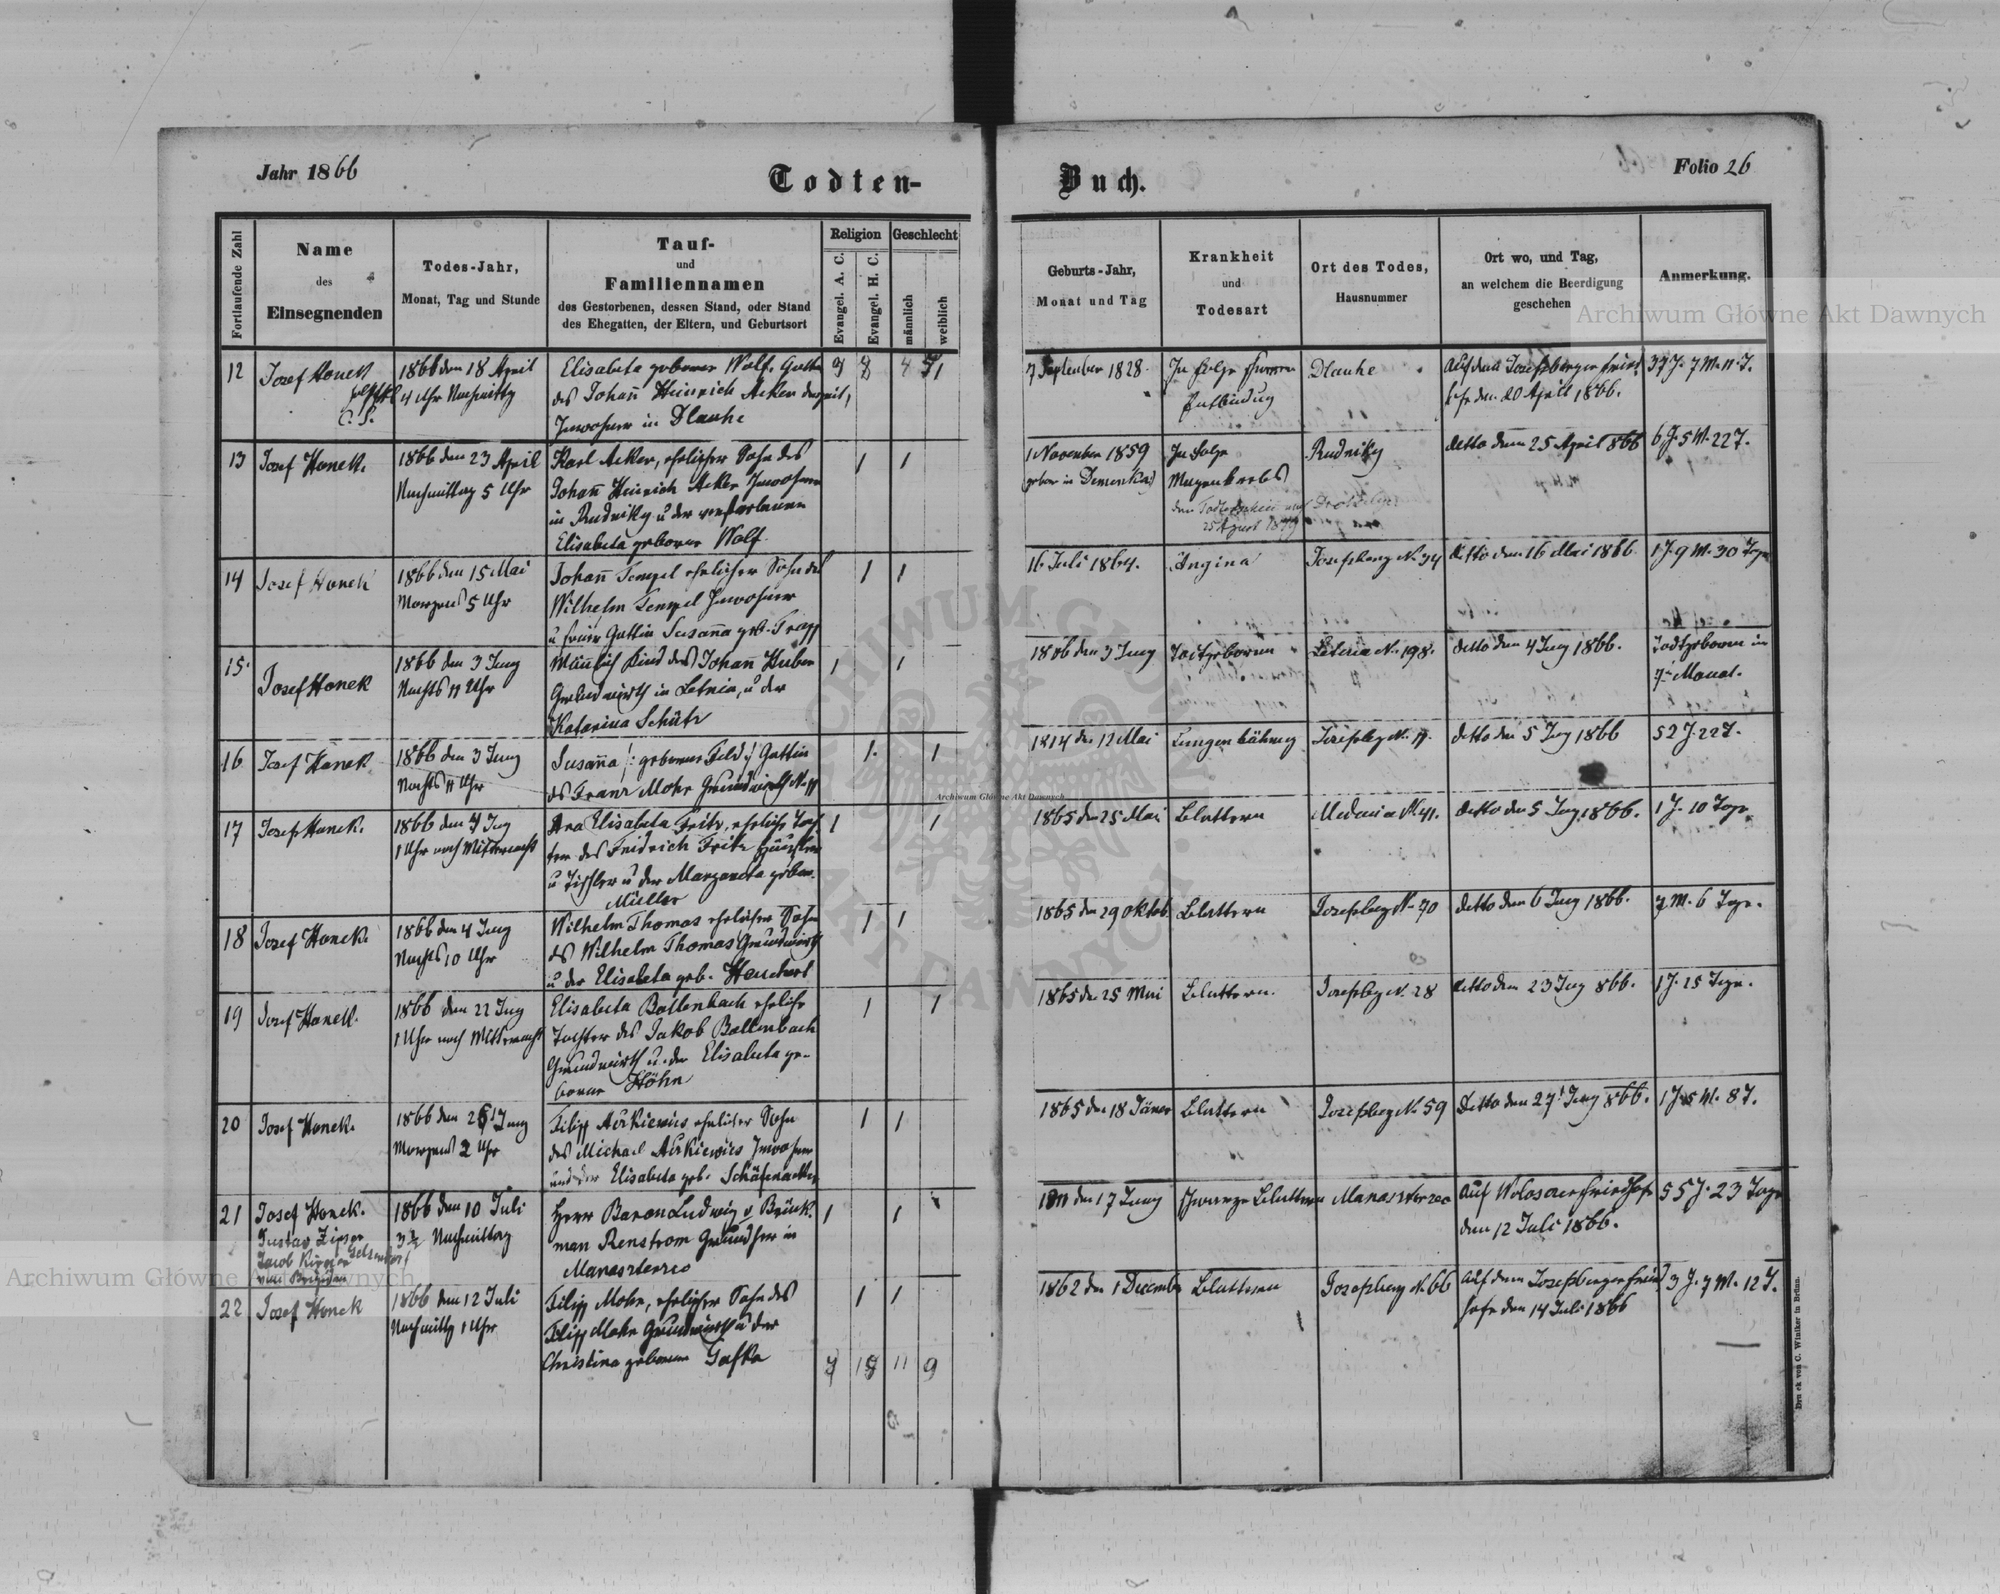 Jahr 1866
Todten-
Buch.
Folio 26
Fortlaufende Zahl
Name
des
Einsegnenden
Todes-Jahr,
Monat, Tag und Stunde
Tauf-
und
Familiennamen
des Gestorbenen, dessen Stand, oder Stand
des Ehegatten, der Eltern, und Geburtsort
Religion
Evangel. A. C.
Evangel. H. C.
Geschlecht
männlich
weiblich
Geburts-Jahr,
Monat und Tag
Krankheit
und
Todesart
Ort des Todes,
Hausnummer
Ort wo, und Tag,
an welchem die Beerdigung
geschehen
Anmerkung.
12
Josef Honek
1866 den 18 April
4 Uhr Nachmittg
Elisabeta geborene Wolf, Gattin
des Johañ Heinrich Acker derzeit,
Inwohner in Dlauhe
7 September 1828.
In folge
Entbindung
Dlauhe
Auf dem Josefsberger Fried
hofe den 20 April 1866.
37 J. 7 M. 11 T.
13
Josef Honek.
1866 den 23 April
Nachmittag 5 Uhr
Karl Acker, ehelicher Sohn des
Johañ Heinrich Acker Inwohner
in Rudniky u der verstorbenen
Elisabeta geborne Wolf
1
1
1 November 1859
In Folge
Magenkrebs
Rudniky
detto den 25 April 866
6 J. 5 M. 22 T.
14
Josef Honek
1866 den 15 Mai
Morgens 5 Uhr
Johañ Tempel ehelicher Sohn des
Wilhelm Tempel Inwohner
u seiner Gattin Susaña geb. Trapp
1
1
16 Juli 1864.
Angina
Josefsberg N. 34
detto den 16 Mai 1866.
1 J. 9 M. 30 Tage
15
Josef Honek
1866 den 3 Juny
Nachts 11 Uhr
Mänlich Kind des Johañ Huber
Grundwirth in Letnia, u der
Katarina Schütz
1
1
1866 den 3 Juny
Todtgeboren
Letnia N. 198.
detto den 4 Juny 1866.
Todtgeboren in
7 Monat.
16
Josef Honek
1866 den 3 Juny
Nachts 11 Uhr
Susaña /: geborene Feld :/ Gattin
des Franz Mohr Grundwirth N. 11
1.
1
1814 den 12 Mai
Lungenlähmung
Josefsbrg N. 11.
detto den 5 Juny 1866
52 J. 22 T.
17
Josef Honek.
1866 den 4 Juny
1 Uhr nach Mitternacht
Ana Elisabeta Fritz, eheliche Toch
ter des Fridrich Fritz Häusler
u Tischler u der Margareta gebor.
Müller
1
1
1865 den 25 Mai
Blattern
Medenica N. 41.
detto den 5 Juny 1866.
1 J. 10 Tage
18
Josef Honek.
1866 den 4 Juny
Nachts 10 Uhr
Wilhelm Thomas ehelicher Sohn
des Wilhelm Thomas Grundwirth
u der Elisabeta geb.
1
1
1865 den 29 Oktob.
Blattern
Josefsberg N. 70
detto den 6 Juny 1866.
7 M. 6 Tage.
19
Josef Honek.
1866 den 22 Juny
1 Uhr nach Mitternacht
Elisabeta Bollenbach eheliche
Tochter des Jakob Bollenbach
Grundwirth u. der Elisabeta ge-
borne Höhn
1
1
1865 den 25 Mai
Blattern.
Josefsberg N. 28
detto den 23 Juny 866.
1 J. 25 Tage.
20
Josef Honek.
1866 den 26 Juny
Morgens 2 Uhr
Filipp Aurkiewics ehelicher Sohn
des Michael Aurkiewics Inwohner
und der Elisabeta geb.
1
1
1865 den 18 Jäner
Blattern
Josefsberg N. 59
Detto den 27 Juny 866.
1 J. 5 M. 8 T.
21
Josef Honek.
Gustav Zipser
1866 den 10 Juli
3½ Nachmittag
Herr Baron Ludwig v. Brück
man Renstrom Grundherr in
Manasterzec
1
1
1811 den 17 Juny
Schwarze Blattern
Manasterzec
Auf Wolosczer Friedhofe
den 12 Juli 1866.
55 J. 23 Tage
22
Josef Honek
1866 den 12 Juli
Nachmittg 1 Uhr
Filipp Mohr, ehelicher Sohn des
Filipp Mohr Grundwirth u der
Christina geborene
1
1
1862 den 1 Decembr
Blattern
Josefsberg N. 66
Auf dem Josefsberger Fried
hofe den 14 Juli 1866
3 J. 7 M. 12 T.
11
9
Druck von C. Winiker in Brünn.
Archiwum Główne Akt Dawnych
Archiwum Główne Akt Dawnych
Archiwum Główne Akt Dawnych
ARCHIWUM GŁÓWNE AKT DAWNYCH